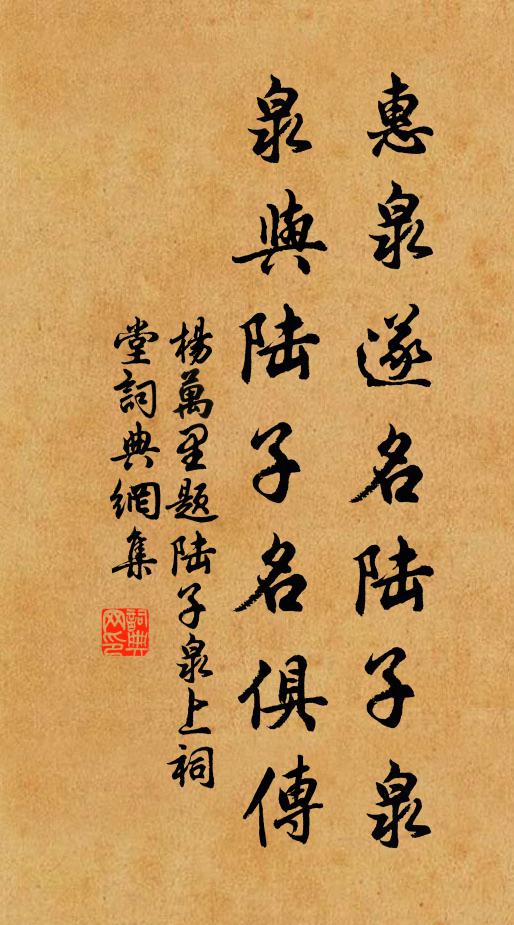 惠泉遂名陆子泉
泉與陆子名俱傳
楊萬里題陆子泉上祠
堂詞典網集
詞典
网印